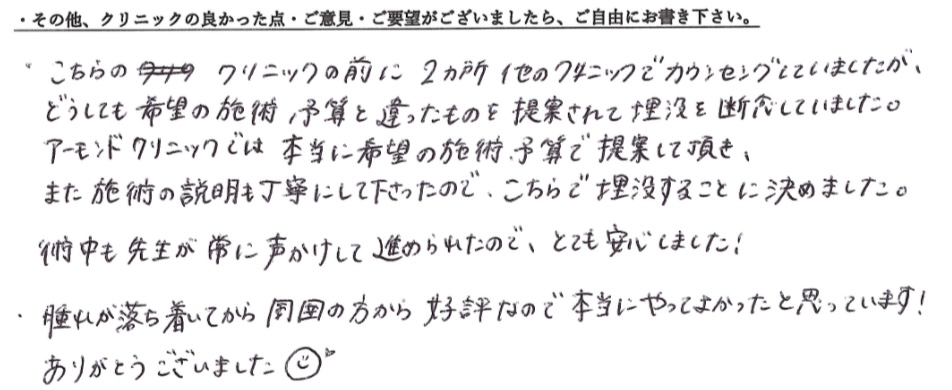 ・その他、クリニックの良かった点・ご意見・ご要望がございましたら、ご自由にお書き下さい。
・こちらの クリニックの前に 2カ所 他のクリニックでカウンセングしていましたが、
どうしても希望の施術、予算と違ったものを提案されて埋没を断念していました。
アーモンドクリニックでは 本当に希望の施術、予算で提案して頂き、
また施術の説明も丁寧にして下さったので、こちらで埋没することに決めました。
術中も先生が常に声かけして進められたので、とても安心しました!
・腫れが落ち着いてから周囲の方から好評なので本当にやってよかったと思っています!
ありがとうございました